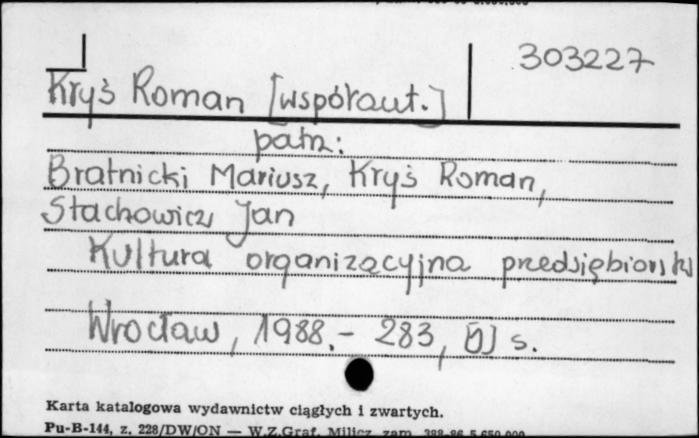 303227
Kryś Roman [współaut.]
patrz:
Bratnicki Mariusz, Kryś Roman,
Stachowicz Jan
Kultura organizacyjna przedsiębiorstw
Wrocław, 1988.- 283, [1] s.
Karta katalogowa wydawnictw ciągłych i zwartych.
Pu-B-144, z. 228/DW/ON — W.Z.Graf. Milicz zam.